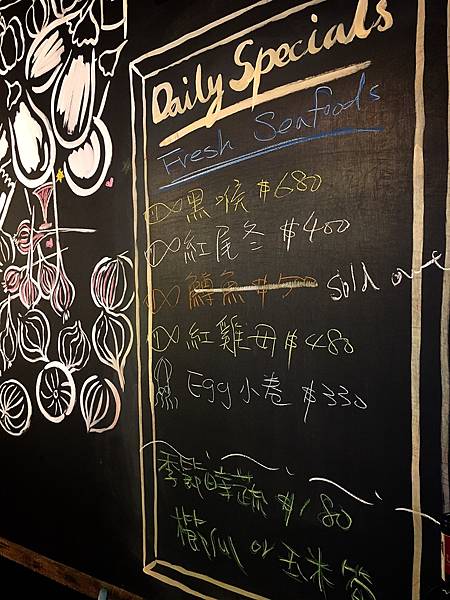 Daily Specials
Fresh Seafoods
黑喉 $680
紅尾冬 $400
鱒魚 $500 Sold out
紅雞母 $480
Egg小卷 $330
季節時蔬 $180
or 玉米筍